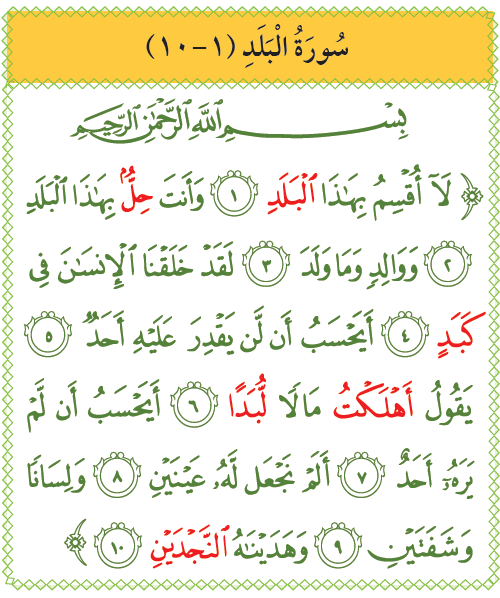 سُورَةُ الْبَلَدِ (١-١٠)
بِسْمِ اللَّهِ الرَّحْمَٰنِ الرَّحِيمِ
﴿ لَآ أُقْسِمُ بِهَٰذَا ٱلْبَلَدِ ١ وَأَنتَ حِلٌّۢ بِهَٰذَا ٱلْبَلَدِ
٢ وَوَالِدٍ وَمَا وَلَدَ ٣ لَقَدْ خَلَقْنَا ٱلْإِنسَٰنَ فِى
كَبَدٍ ٤ أَيَحْسَبُ أَن لَّن يَقْدِرَ عَلَيْهِ أَحَدٌ ٥
يَقُولُ أَهْلَكْتُ مَالًا لُّبَدًا ٦ أَيَحْسَبُ أَن لَّمْ
يَرَهُۥٓ أَحَدٌ ٧ أَلَمْ نَجْعَل لَّهُۥ عَيْنَيْنِ ٨ وَلِسَانًا
وَشَفَتَيْنِ ٩ وَهَدَيْنَٰهُ ٱلنَّجْدَيْنِ ١٠ ﴾